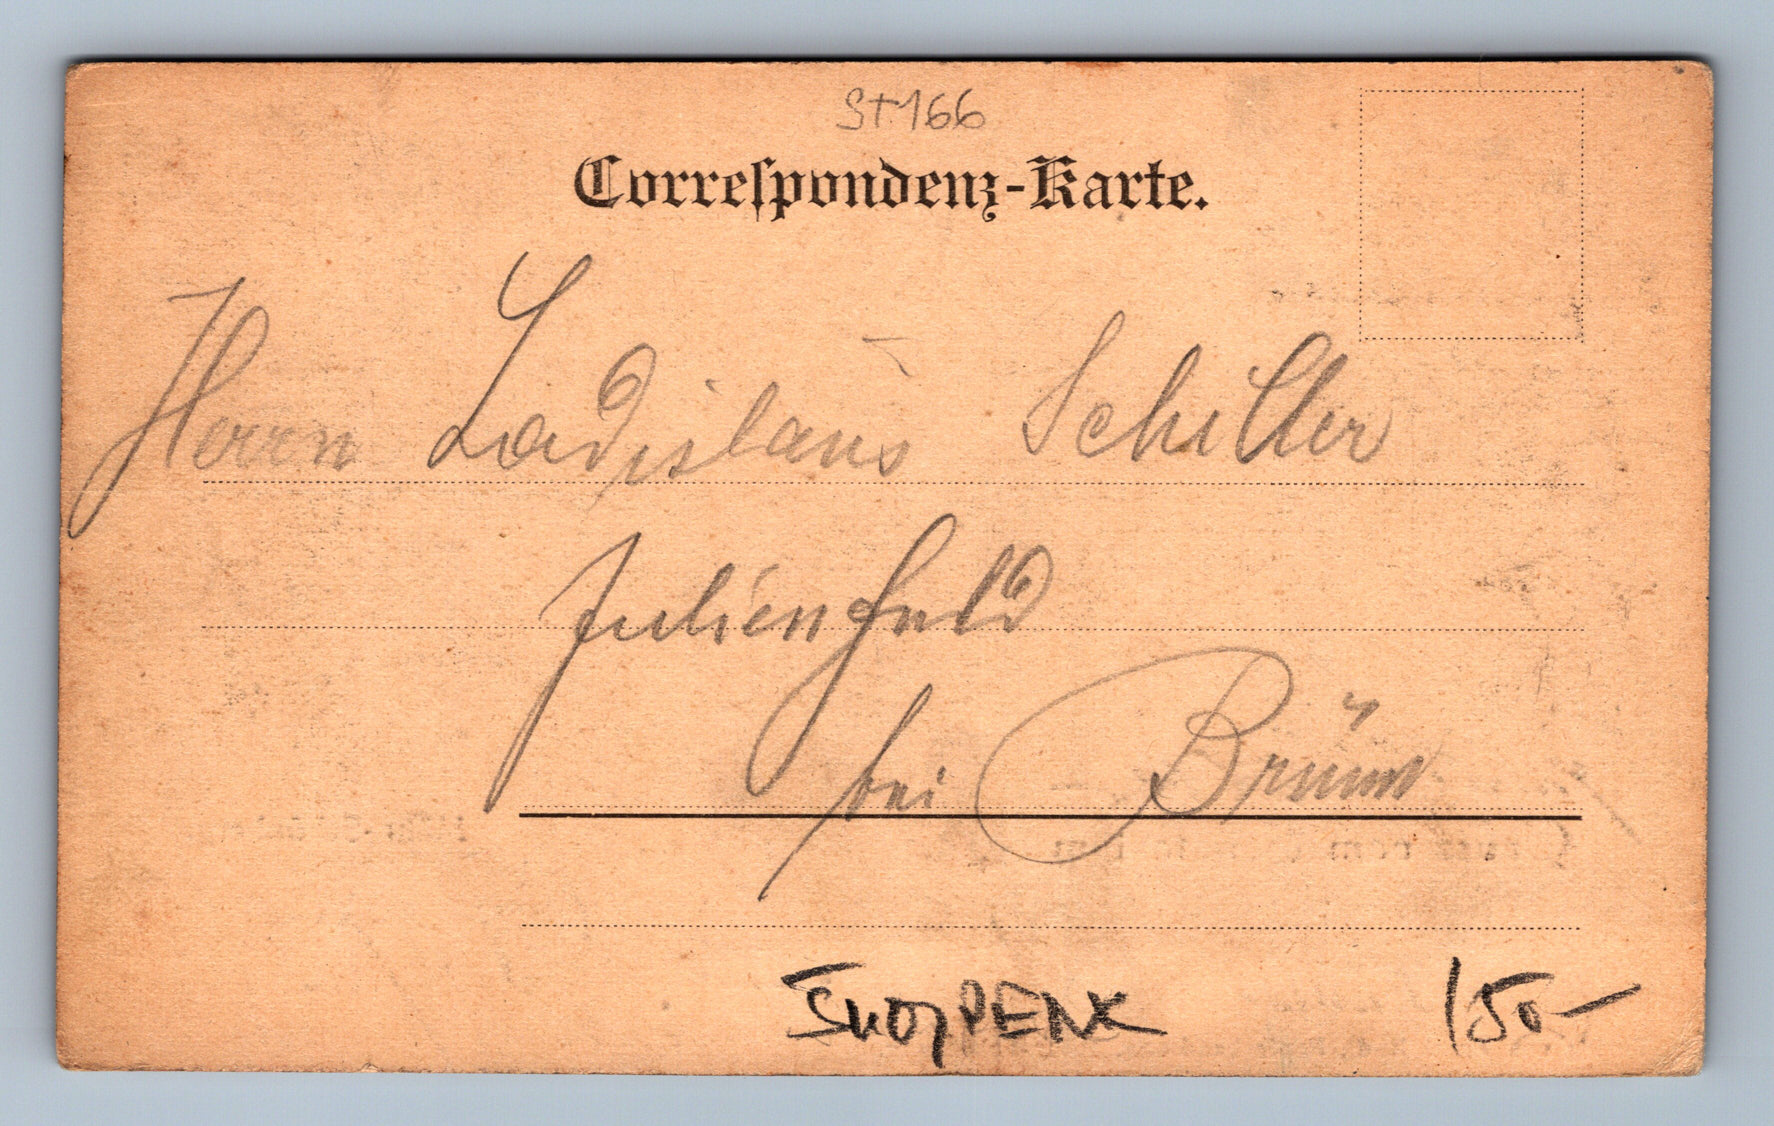 St166
Correſpondenz-Karte.
Herrn Ladislaus Schiller
Julienfeld
bei Brünn
150-